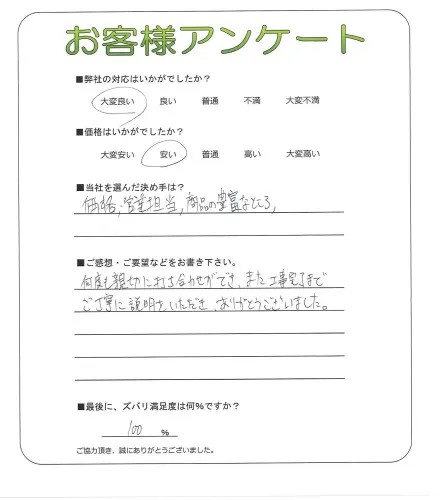 お客様アンケート
■弊社の対応はいかがでしたか？
大変良い 良い 普通 不満 大変不満
■価格はいかがでしたか？
大変安い 安い 普通 高い 大変高い
■当社を選んだ決め手は？
価格、営業担当、商品の豊富なところ、
■ご感想・ご要望などをお書き下さい。
何度も親切に打ち合わせができ、また工事完了まで
ご丁寧に説明をいただき、ありがとうございました。
■最後に、ズバリ満足度は何%ですか？
100 %
ご協力頂き、誠にありがとうございました。